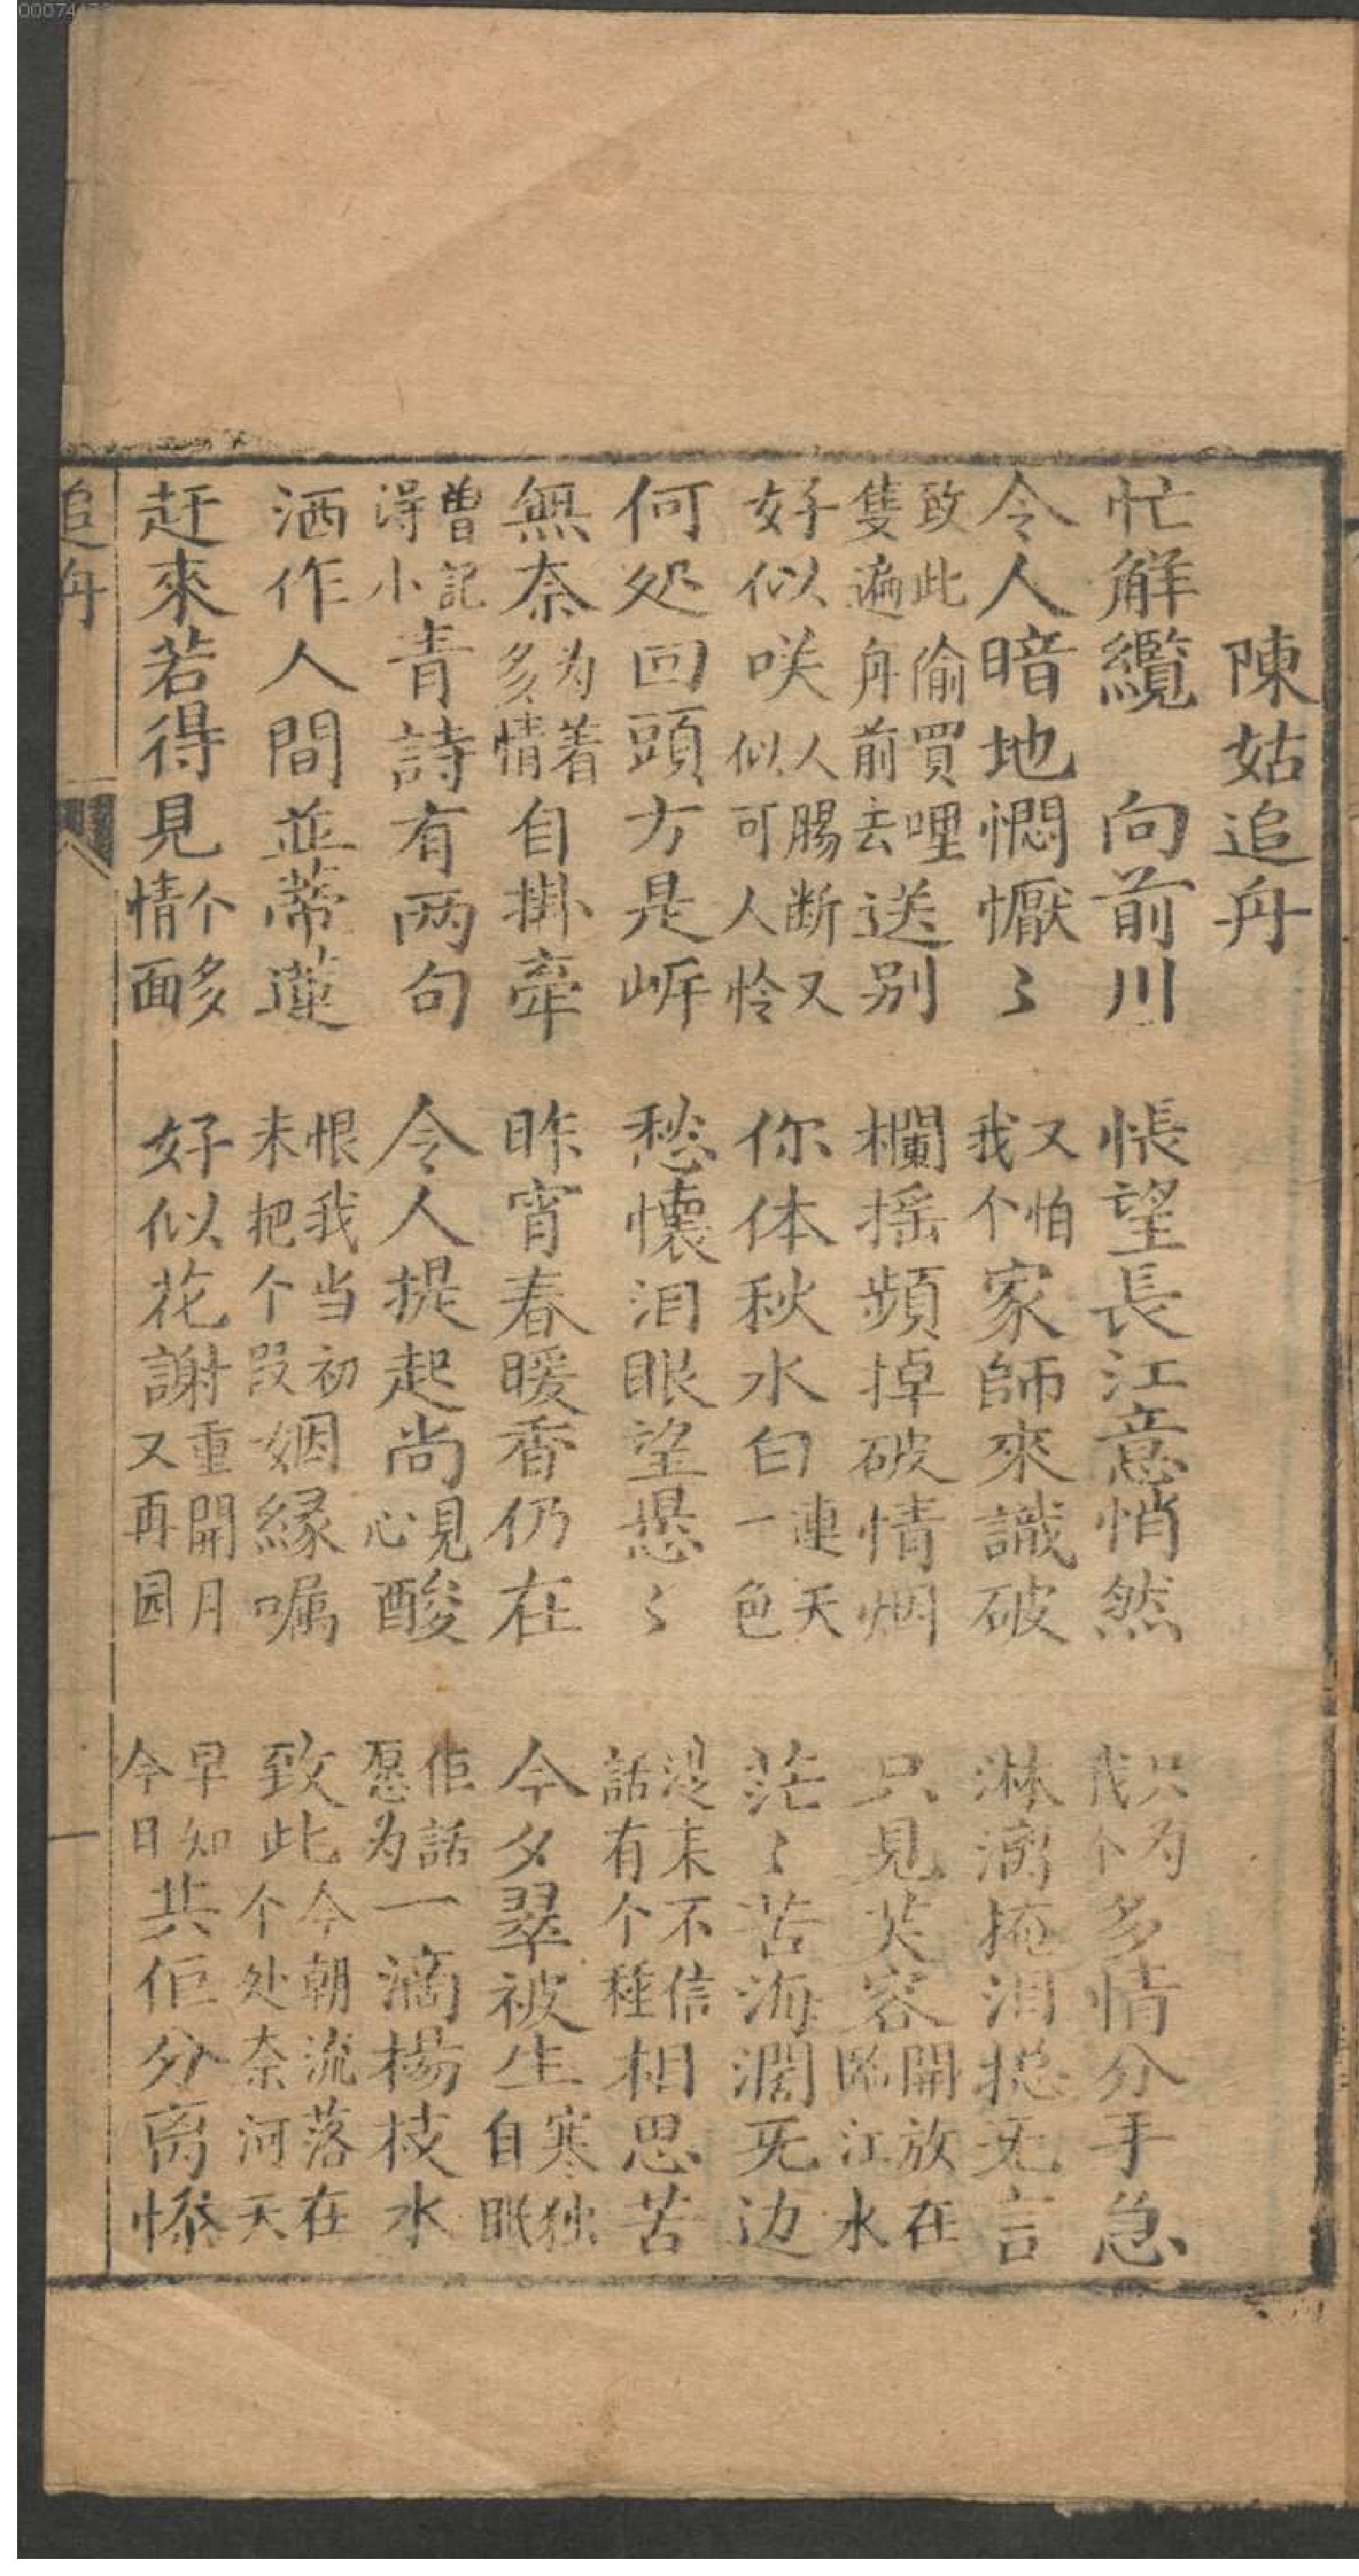 陳姑追舟
忙解纜 向前川 悵望長江意悄然 只为我个多情分手急
令人暗地悶懨〻 又怕我个家師來識破 淋漓掩泪搃旡言
致此偷買哩隻遍舟前去送别 欄摇頻掉破情烟 只見芙容開放在臨江水
好似咲人腸断又似可人怜 你体秋水白連天一色 茫〻苦海濶旡边
何処回頭方是岍 愁懷泪眼望悬〻 没来不信話有个種相思苦
無奈为着多情自掛牽 昨宵春暖香仍在 今夕翠被生寒独自眠
曽記得小青詩有两句 令人提起尚見心酸 佢話愿为一滴楊枝水
洒作人間並蒂蓮 恨我当初未把个段姻縁嘱 致此今朝流落在个处奈河天
赶來若得見个多情面 好似花謝重開月又再园 早知今日共佢分离慘
追舟
一